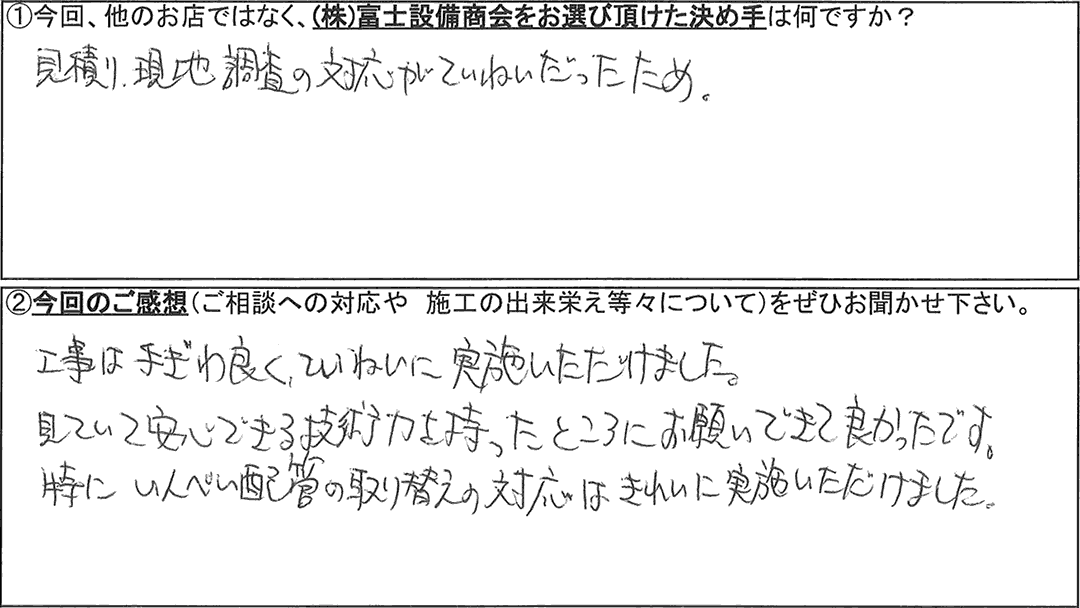 ①今回、他のお店ではなく、(株)富士設備商会をお選び頂けた決め手は何ですか？
見積り、現地調査の対応がていねいだったため。
②今回のご感想(ご相談への対応や　施工の出来栄え等々について)をぜひお聞かせ下さい。
工事は手ぎわ良く、ていねいに実施いただけました。
見ていて安心できる技術力を持ったところにお願いできて良かったです。
特にいんぺい配管の取り替えの対応はきれいに実施いただけました。